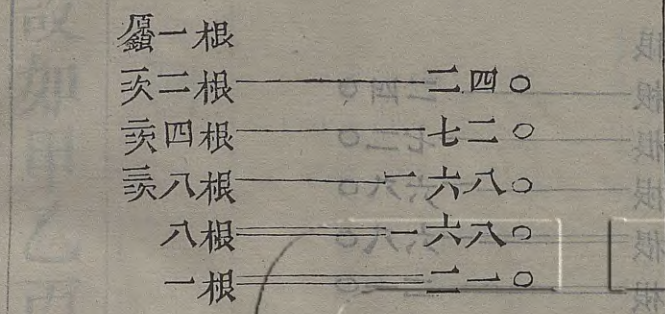 原銀一根
一次二根——二四〇
二次四根——七二〇
三次八根——一六八〇
八根══一六八〇
一根══二一〇